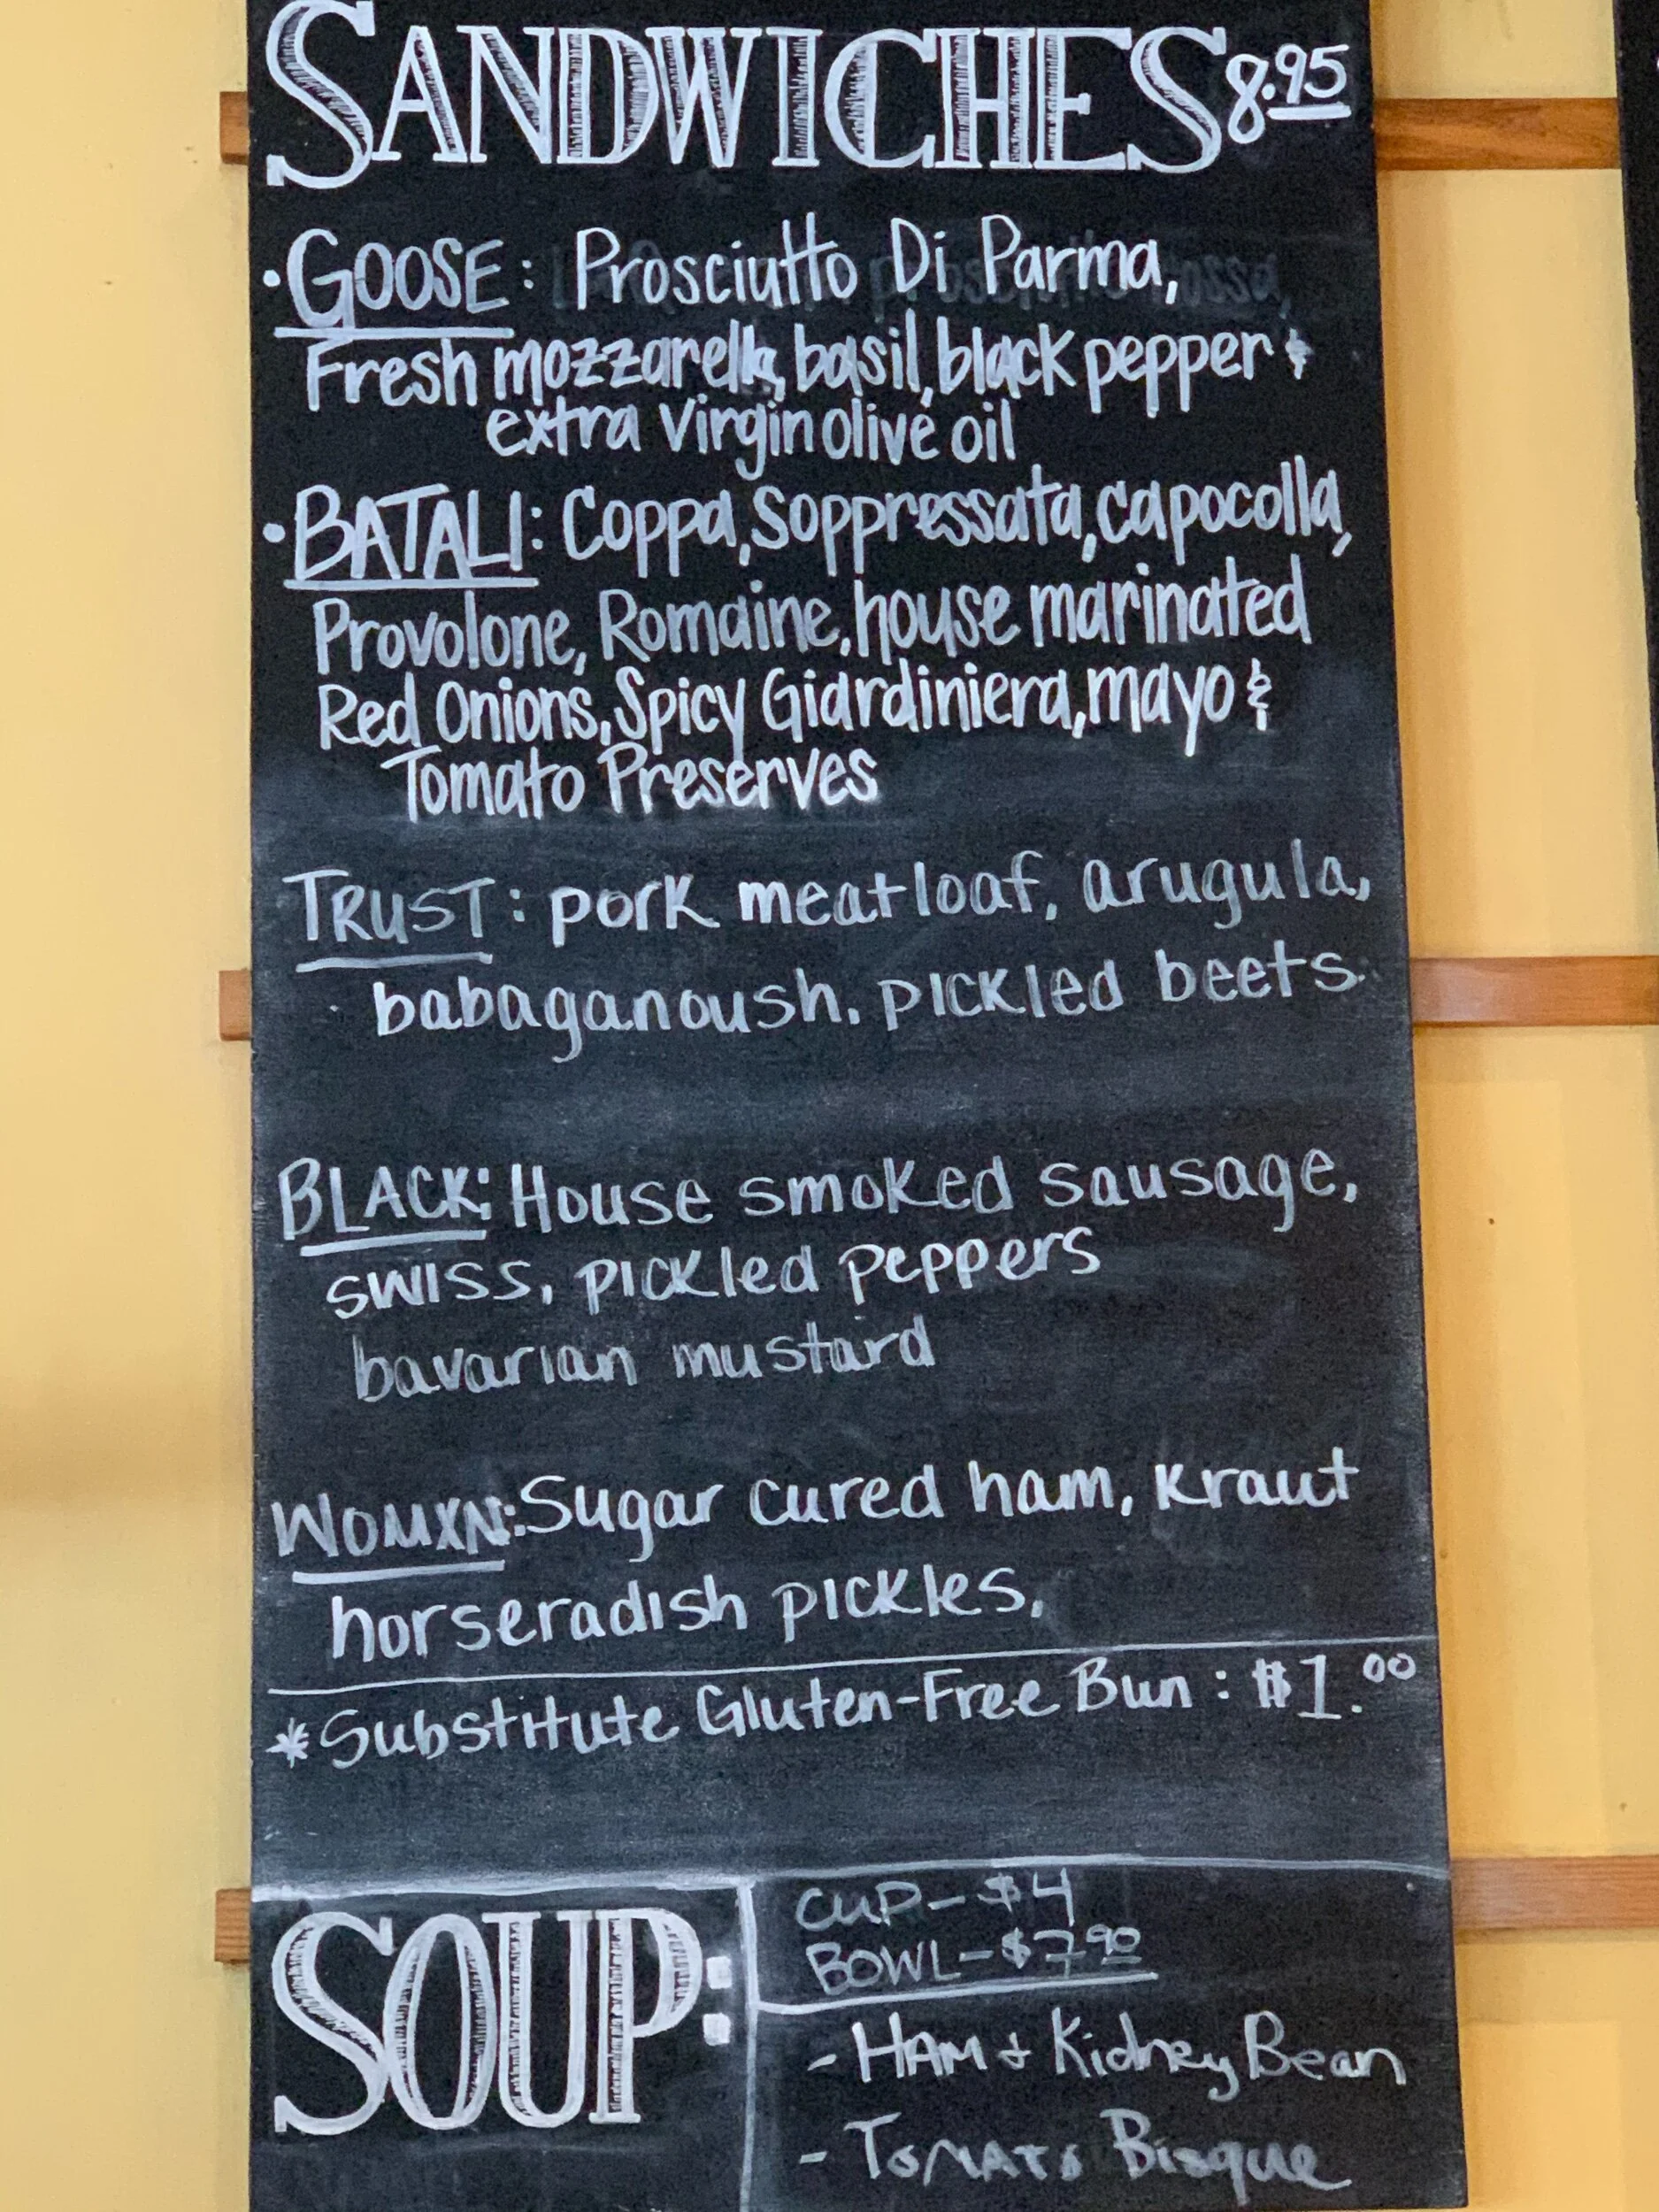 SANDWICHES 8.95
• GOOSE: Prosciutto Di Parma,
Fresh mozzarella, basil, black pepper &
extra virgin olive oil
• BATALI: Coppa, Soppressata, capocolla,
Provolone, Romaine, house marinated
Red Onions, Spicy Giardiniera, mayo &
Tomato Preserves
TRUST: pork meatloaf, arugula,
babaganoush, pickled beets.
BLACK: House smoked sausage,
swiss, pickled peppers
bavarian mustard
WOMXN: Sugar cured ham, kraut
horseradish pickles,
*Substitute Gluten-Free Bun: $1.00
SOUP:
CUP - $4
BOWL - $7.90
- HAM + Kidney Bean
- TOMATO Bisque